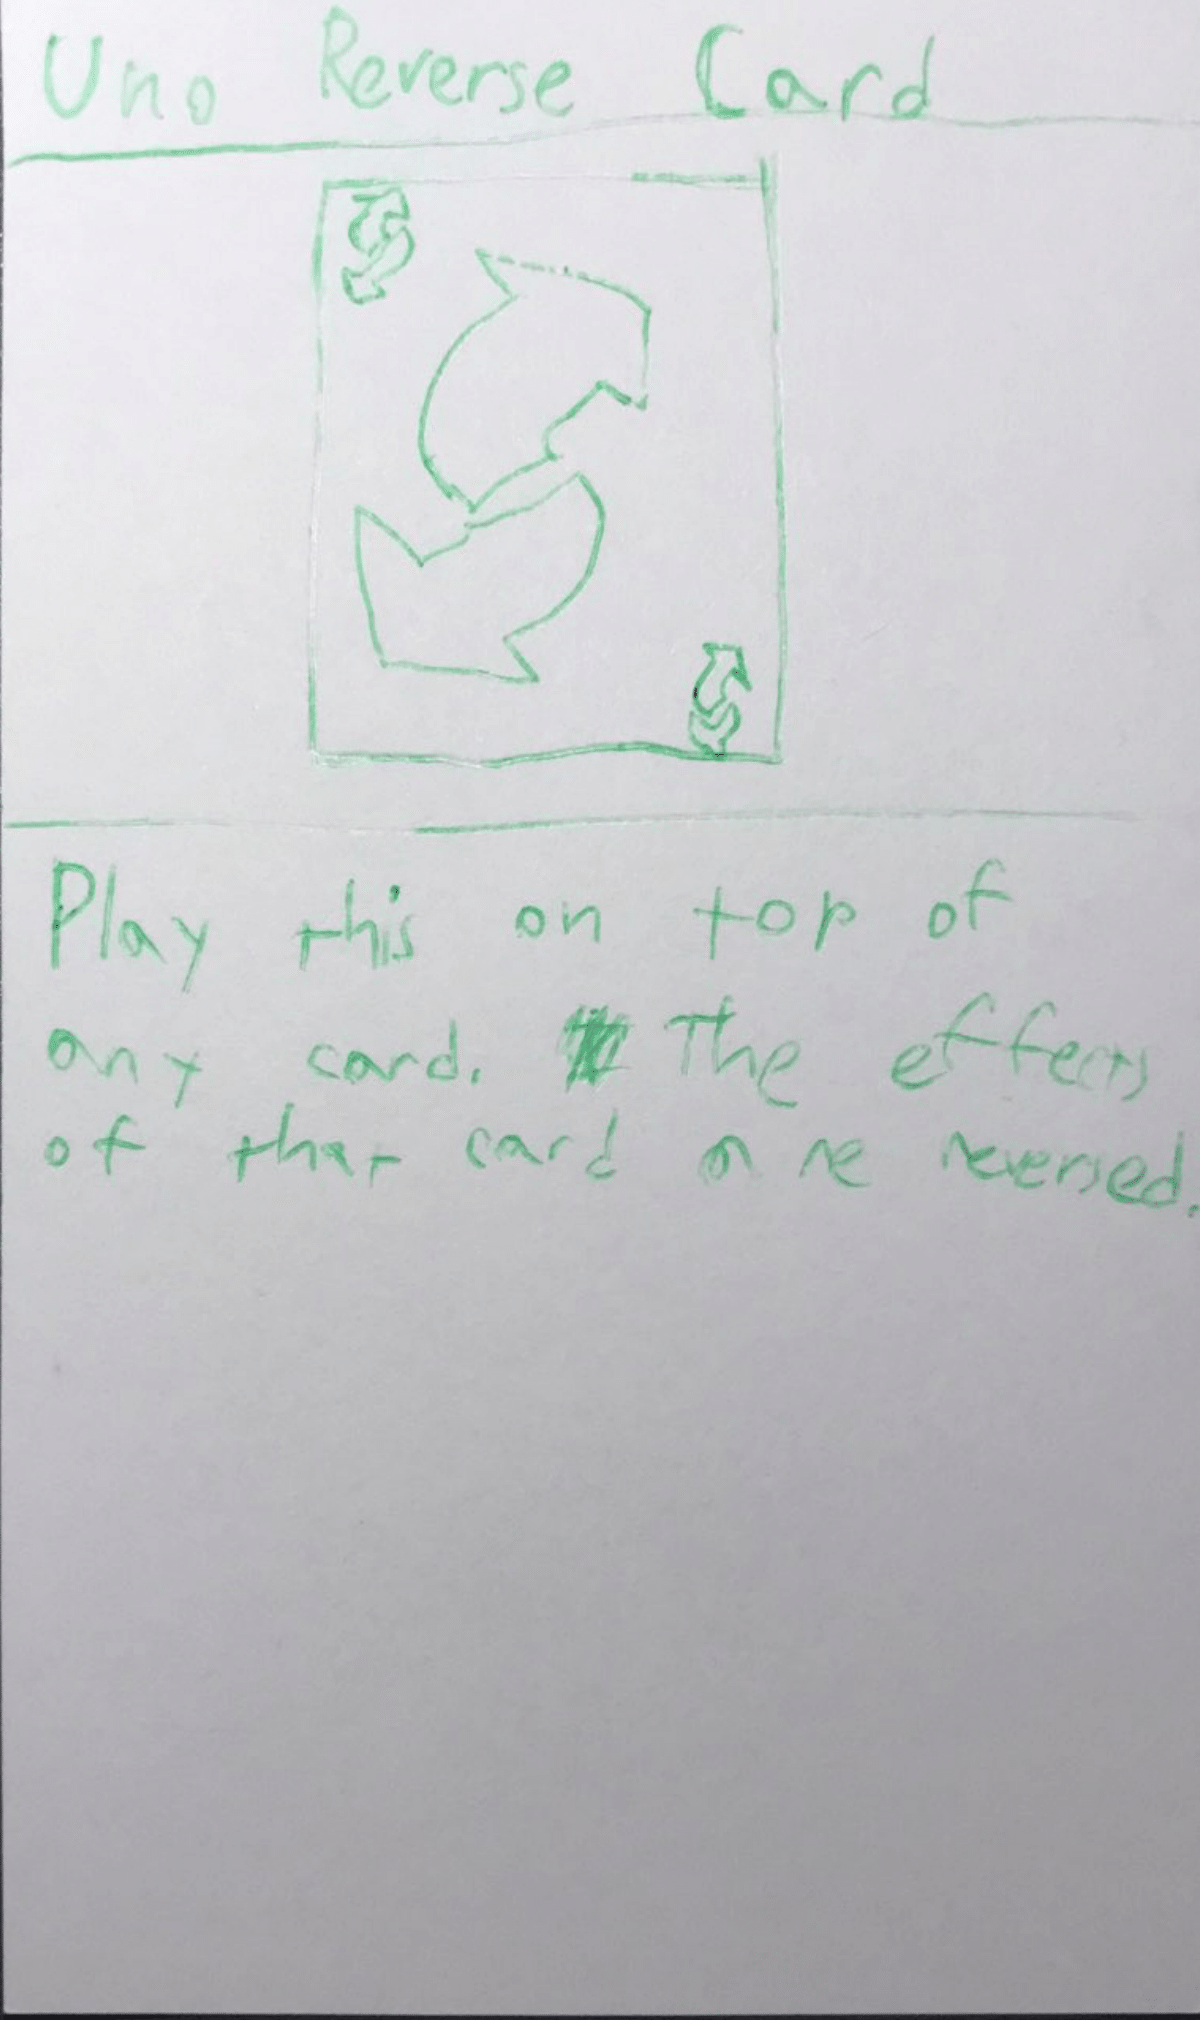 Uno Reverse Card
Play this on top of
any card. The effects
of that card are reversed.